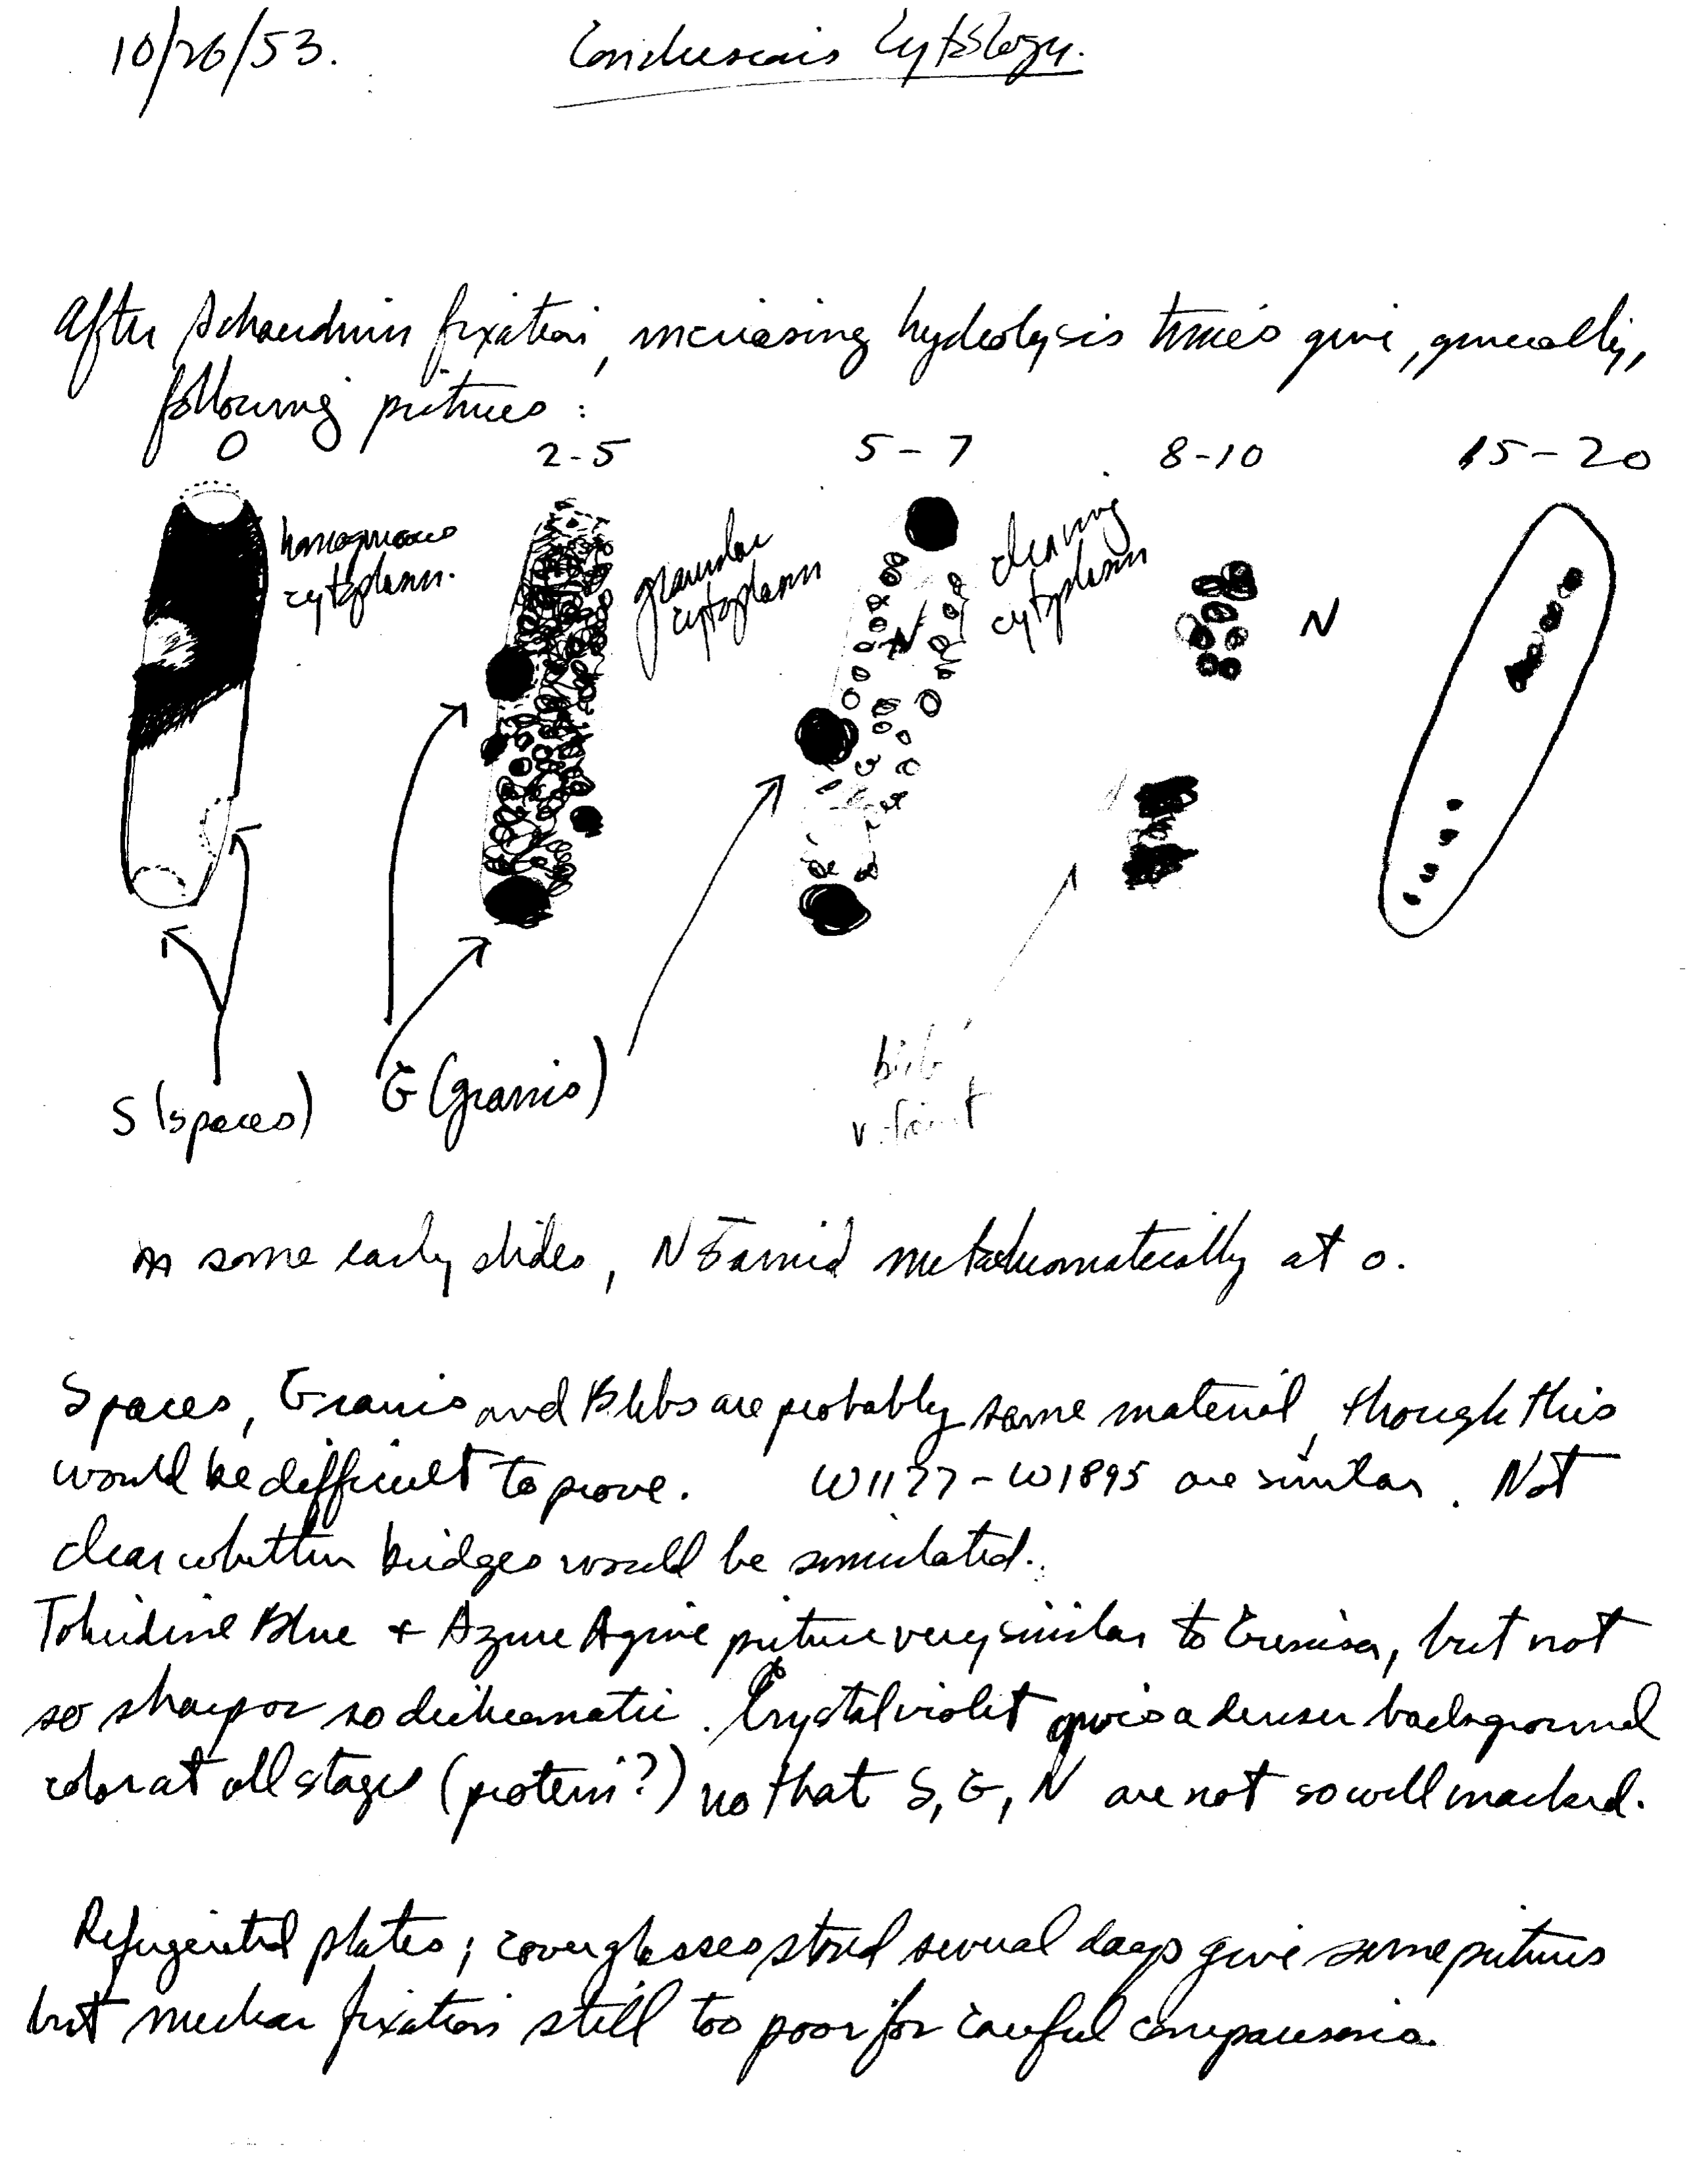 10/26/53. Conclusions Cytology.
After Schaudinn fixation, increasing hydrolysis times give, generally,
following pictures:
0 2-5 5-7 8-10 15-20
homogeneous
cytoplasm.
granular
cytoplasm
clearing
cytoplasm
N
N
S (spaces) G (grains)
bleb
v. faint
In some early slides, N stained metachromatically at 0.
Spaces, Grains and Blebs are probably same material, though this
would be difficult to prove. W1177-W1895 are similar. Not
clear whether bridges would be simulated.
Toluidine Blue + Azure A give picture very similar to Giemsa, but not
so sharp or so dichromatic. Crystal violet gives a denser background
color at all stages (protein?) so that S, G, N are not so well marked.
Refrigerated plates; coverglasses stored several days give same pictures
but nuclear fixation still too poor for careful comparisons.